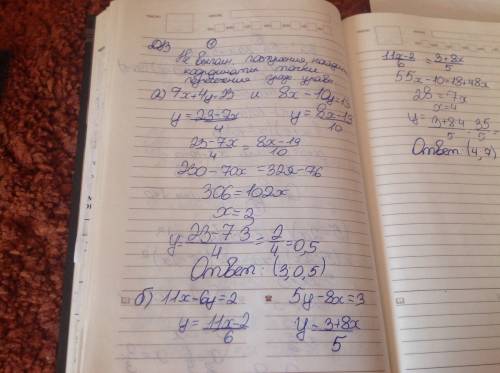 Д/З ①
Не выполн. построения, найдите
координаты точки
пересечения граф. уравн.
а) 7x+4y=23 и 8x-10y=19
y=23-7x/4 y=8x-19/10
23-7x/4=8x-19/10
230-70x=32x-76
306=102x
x=3
y=23-7·3/4=2/4=0,5
Ответ: (3,0,5)
б) 11x-6y=2 5y-8x=3
y=11x-2/6 y=3+8x/5
11x-2/6=3+8x/5
55x-10=18+48x
28=7x
x=4
y=3+8·4/5=35/5
Ответ: (4,7)